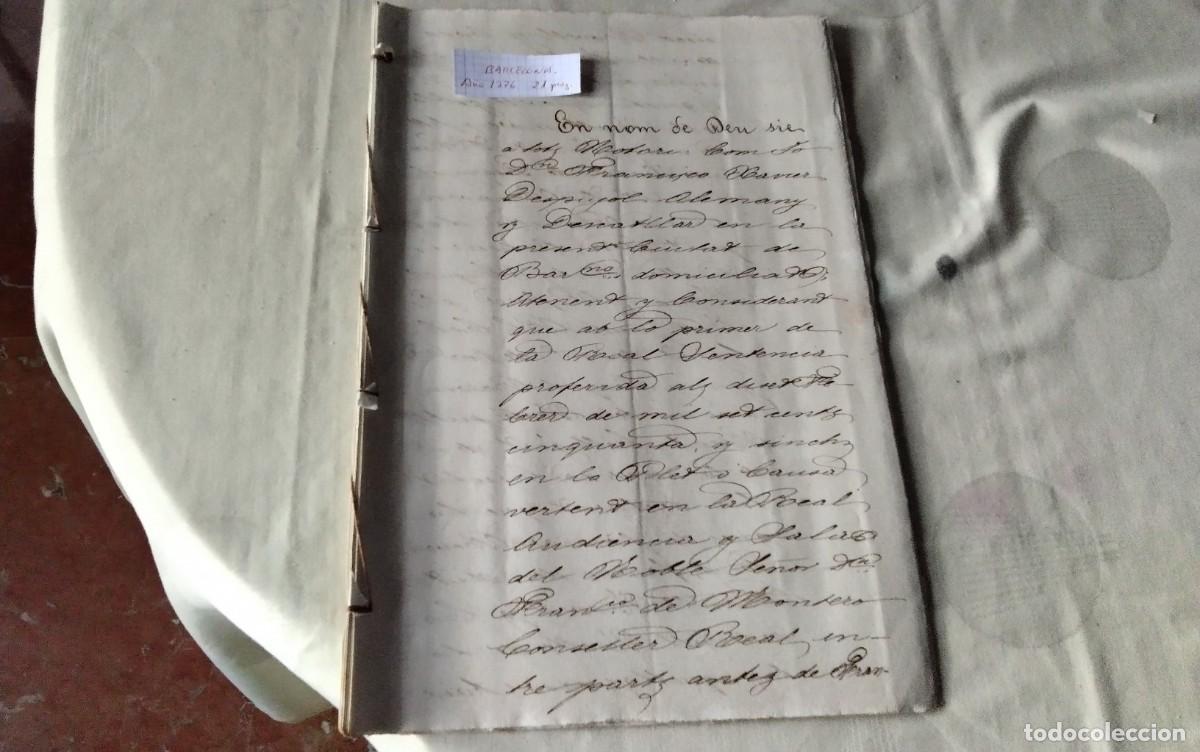 BARCELONA.
Año 1776 21 pag.
En nom de Deu sie
a tots Notori: Com Jo
Dn. Francisco Xavier
Despujol Alemany
y Descatllar en la
present Ciutat de
Barna. domiciliat;
Atenent y Considerant
que ab lo primer de
la Real Sentencia
proferida als diset Fe-
brer de mil set cents
cinquanta, y sinch
en lo Plet o Causa
vertent en la Real
Audiencia y Sala
del Noble Señor Dn.
Franco. de Montero
Conseller Real, en-
tre parts antes de Fran-
todocoleccion